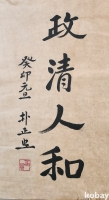 政清人和
癸卯元旦
朴正熙
kobay